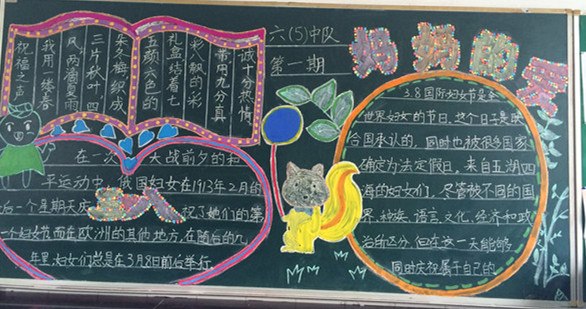 六(5)中队
第一期
妈妈的
祝福之声
我用一缕春
风两滴夏雨
三片秋叶四
朵冬梅织成
五颜六色的
礼盒结着七
彩飘的彩
带 九分真
诚十分热情,
在一次 大战前夕的和
平运动中,俄国妇女在1913年2月的
后一个星期天庆 祝了她们的第
一个妇女节而在欧洲的其他地方,在随后的几
年里,妇女们总是在3月8日前后举行
3.8国际妇女节是
世界妇女的节日,这个日子是联
合国承认的,同时也被很多国家
确定为法定假日,来自五湖四
海的妇女们,尽管被不同的国
界,种族,语言,文化,经济和政
治所区分,但在这一天能够
同时庆祝属于自己的